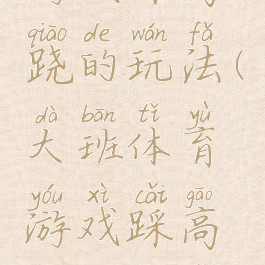 qiāo de wán fǎ
跷的玩法(
dà bān tǐ yù
大班体育
yóu xì cǎi gāo
游戏踩高